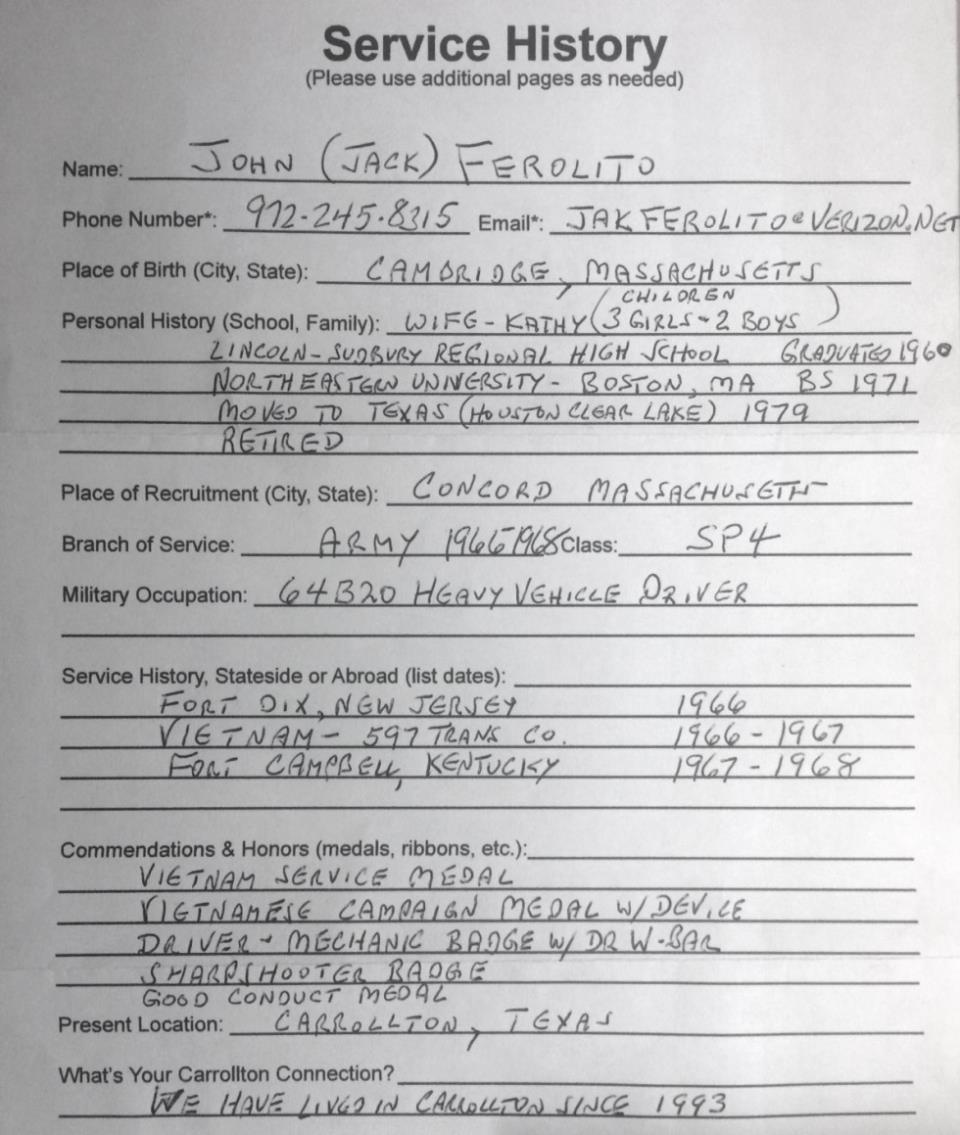 Service History
(Please use additional pages as needed)
Name: JOHN (JACK) FEROLITO
Phone Number*: 972-245-8315 Email*: JAKFEROLITO@VERIZON.NET
Place of Birth (City, State): CAMBRIDGE, MASSACHUSETTS
CHILDREN
Personal History (School, Family): WIFE - KATHY (3 GIRLS - 2 BOYS)
LINCOLN-SUDBURY REGIONAL HIGH SCHOOL GRADUATED 1960
NORTHEASTERN UNIVERSITY - BOSTON, MA BS 1971
MOVED TO TEXAS (HOUSTON CLEAR LAKE) 1979
RETIRED
Place of Recruitment (City, State): CONCORD MASSACHUSETTS
Branch of Service: ARMY 1966-1968 Class: SP4
Military Occupation: 64B20 HEAVY VEHICLE DRIVER
Service History, Stateside or Abroad (list dates):
FORT DIX, NEW JERSEY 1966
VIETNAM - 597 TRANS CO. 1966 - 1967
FORT CAMPBELL, KENTUCKY 1967 - 1968
Commendations & Honors (medals, ribbons, etc.):
VIETNAM SERVICE MEDAL
VIETNAMESE CAMPAIGN MEDAL W/ DEVICE
DRIVER - MECHANIC BADGE W/ DR W-BAR
SHARPSHOOTER BADGE
GOOD CONDUCT MEDAL
Present Location: CARROLLTON, TEXAS
What's Your Carrollton Connection?
WE HAVE LIVED IN CARROLLTON SINCE 1993